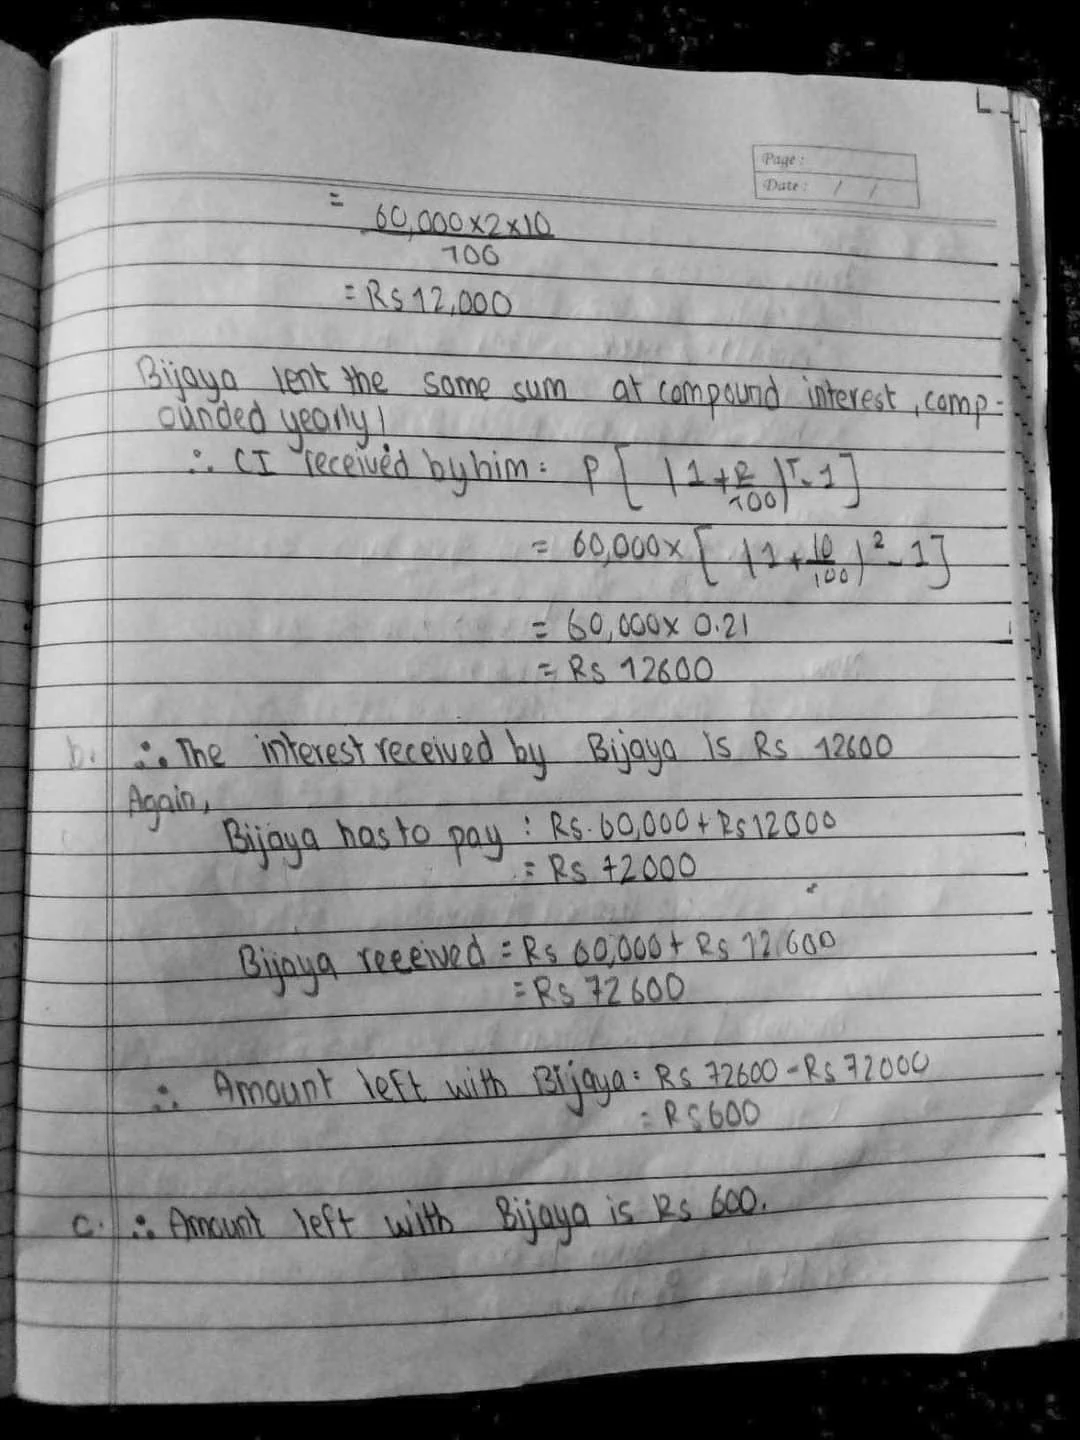 Page :
Date : / /
= 60,000×2×10
100
= Rs 12,000
Bijaya lent the same sum at compound interest, comp-
ounded yearly!
∴ CI received by him = P[(1+R/100)^T-1]
= 60,000×[(1+10/100)^2-1]
= 60,000× 0.21
= Rs 12600
b. ∴ The interest received by Bijaya is Rs 12600
Again,
Bijaya has to pay : Rs. 60,000 + Rs 12000
= Rs 72000
Bijaya received = Rs 60,000 + Rs 12,600
= Rs 72600
∴ Amount left with Bijaya = Rs 72600 - Rs 72000
= Rs 600
c. ∴ Amount left with Bijaya is Rs 600.